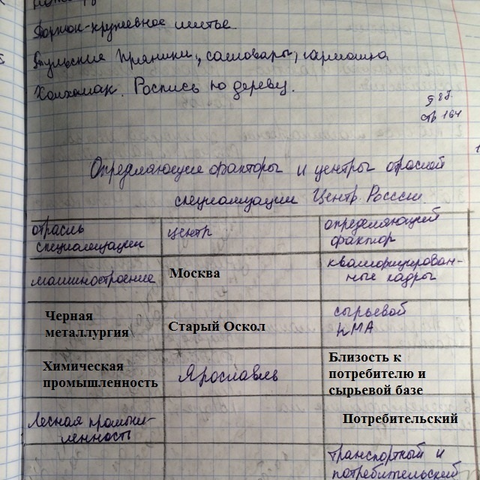 Торжок-кружевное шитье
Тульские пряники, самовары, гармошка
Хохлома. Роспись по дереву.
§ 28.
стр 164
Определяющие факторы и центры отраслей
специализации Центр. России
отрасль
специализации
центр
определяющий
фактор
машиностроение
Москва
квалифицирован-
ные кадры
Черная
металлургия
Старый Оскол
сырьевой
КМА
Химическая
промышленность
Ярославль
Близость к
потребителю и
сырьевой базе
Лесная промыш-
ленность
Потребительский
транспортный и
потребительский